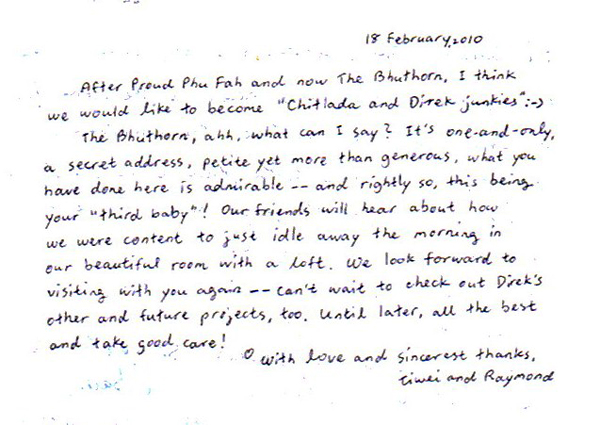 18 February, 2010
After Proud Phu Fah and now The Bhuthorn, I think
we would like to become "Chitlada and Direk junkies" :-)
The Bhuthorn, ahh, what can I say? It's one-and-only,
a secret address, petite yet more than generous, what you
have done here is admirable -- and rightly so, this being
your "third baby"! Our friends will hear about how
we were content to just idle away the morning in
our beautiful room with a loft. We look forward to
visiting with you again -- can't wait to check out Direk's
other and future projects, too. Until later, all the best
and take good care!
With love and sincerest thanks,
Liwei and Raymond